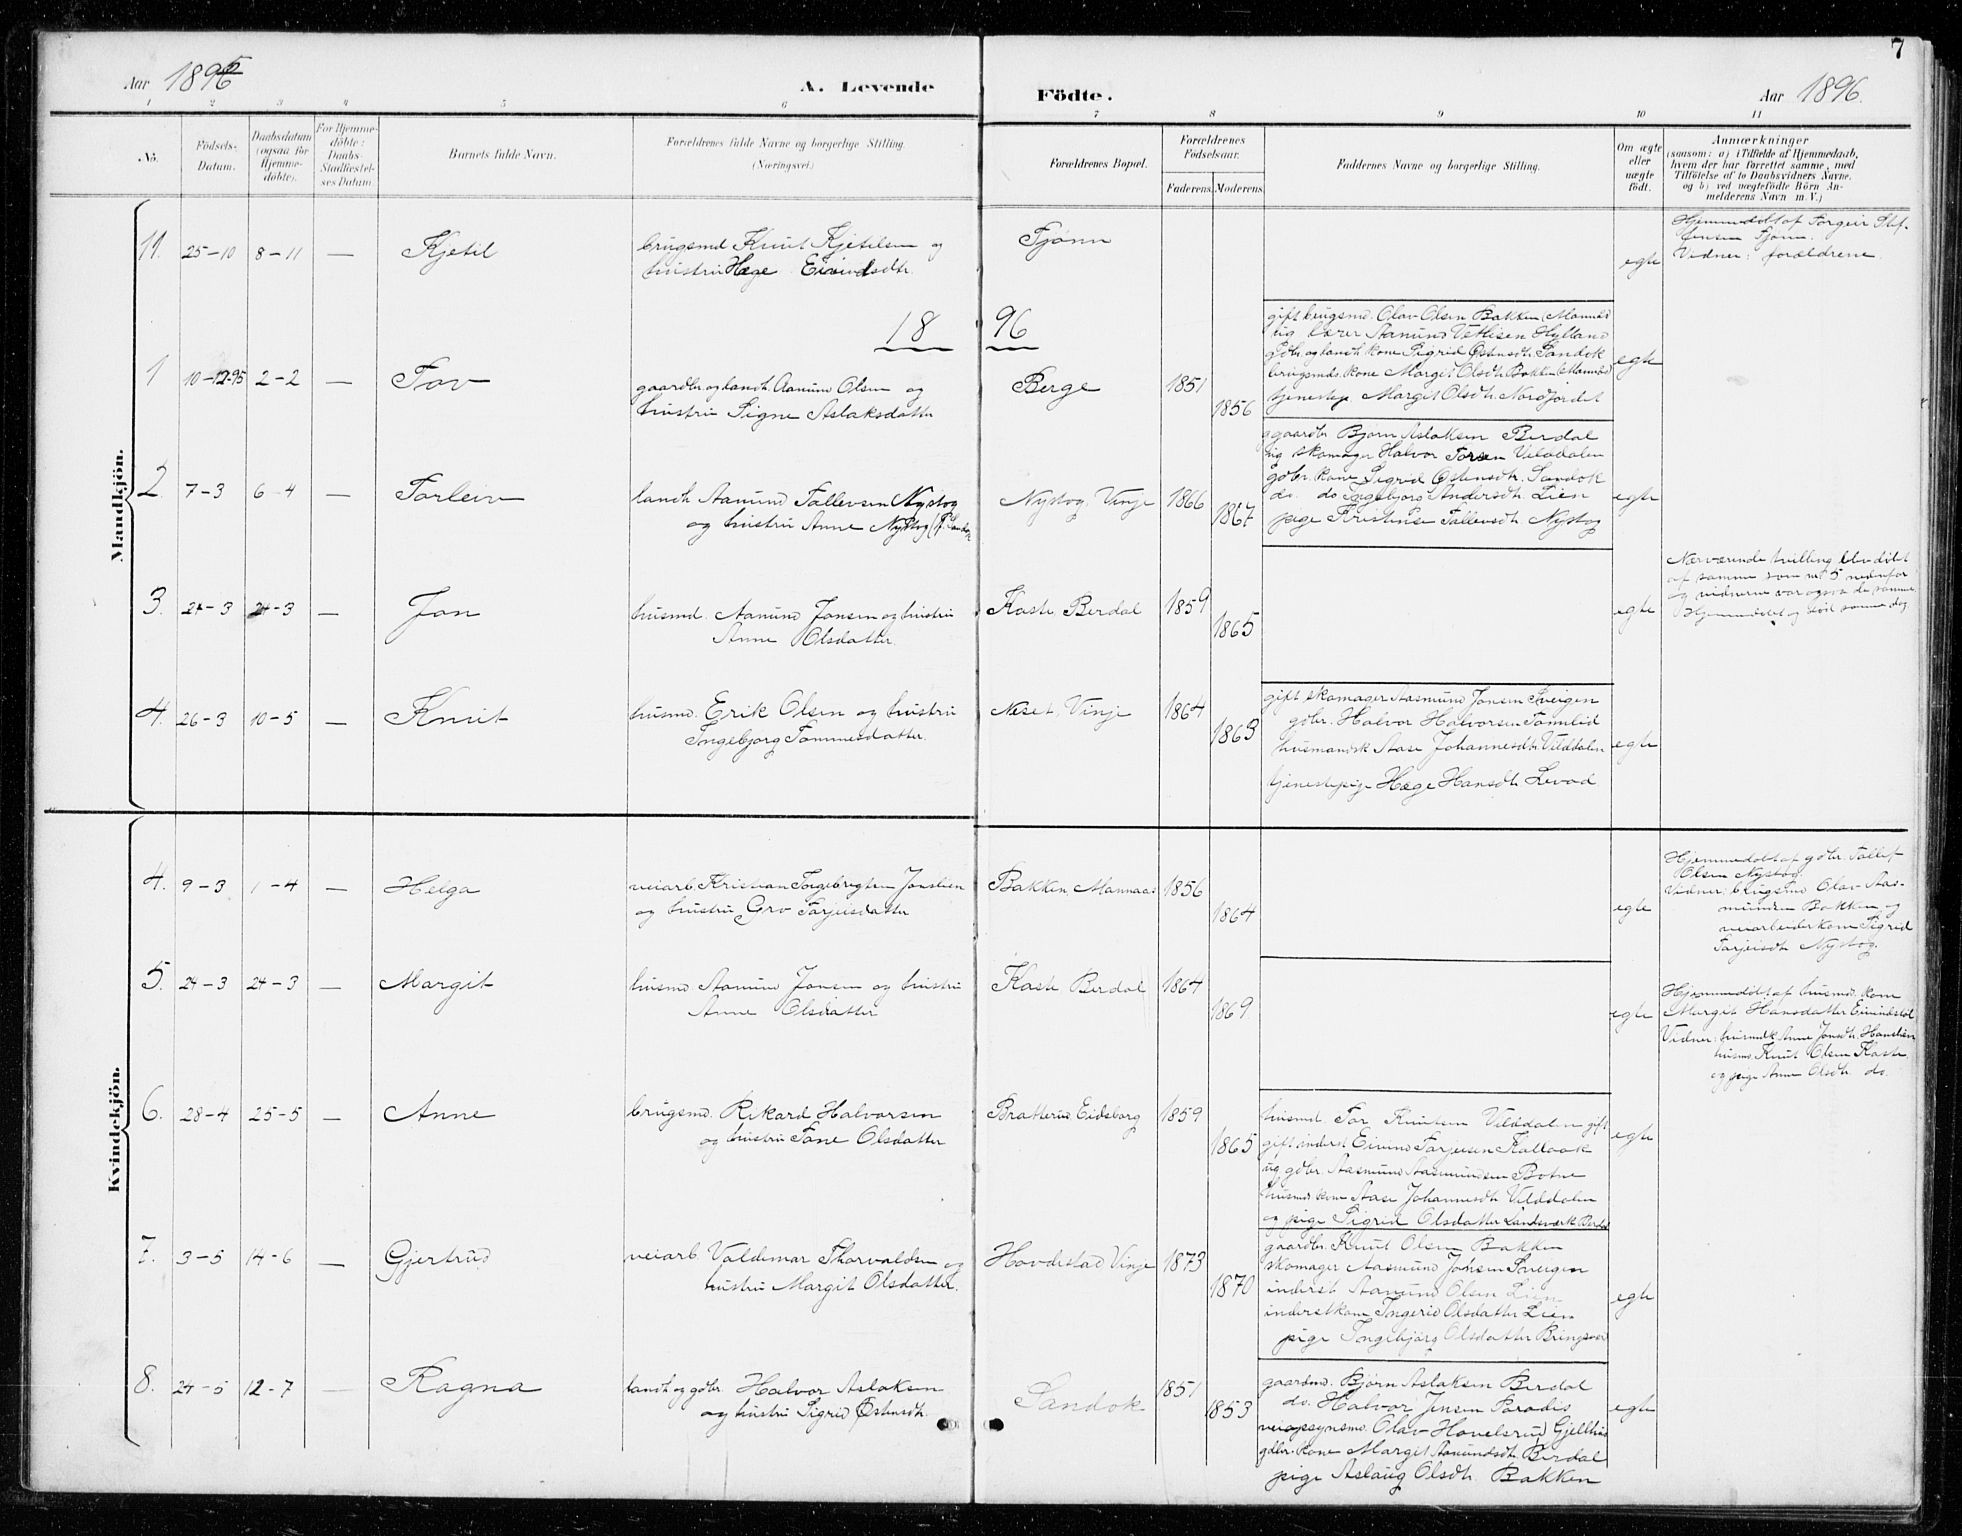 7
Aar 1895
A. Levende Födte.
Aar 1896.
1 2 3 4 5 6 7 8 9 10 11
No.
Födsels-
Datum.
Daabsdatum
(ogsaa for
Hjemme-
döbte).
For Hjemme-
döbte:
Daabs-
Stadfæstel-
ses Datum.
Barnets fulde Navn.
Forældrenes fulde Navne og borgerlige Stilling.
(Næringsvei.)
Forældrenes Bopæl.
Forældrenes
Födselsaar.
Faderens. Moderens.
Faddernes Navne og borgerlige Stilling.
Om ægte
eller
uægte
födt.
Anmærkninger
(saasom: a) i Tilfælde af Hjemmedaab,
hvem der har forrettet samme, med
Tilföielse af to Daabsvidners Navne,
og b) ved uægtefödte Börn An-
melderens Navn m. V.)
Mandkjön.
11. 25-10 8-11 — Kjetil
brugsmd Knut Kjetilsen og
hustru Hæge Eivindsdtr.
Tjønn
egte
Hjemmedøbt af Torgeir Stef-
fensen Tjønn.
Vidner: forældrene.
18 96
1 10-12-95 2-2 — Tov
gaardbr. og landh. Aanund Olsen og
hustru Signe Aslaksdatter
Berge 1851 1856
gift brugsmd. Olav Olsen Bakken (Mannaas)
ug lærer Aanund Vetlisen Hylland
gdbr. og landh. kone Sigrid Østensdtr. Sandok
brugsmds. kone Margit Olsdtr. Bakken (Mannaas)
tjenestepe Margit Olsdtr. Nordfjordet
egte
2 7-3 6-4 — Torleiv
landh Aanund Tallevsen Nystog
og hustru Anne Nystog (f. Sandok
Nystog, Vinje 1866 1867
gaardbr Bjørn Aslaksen Berdal
ug skomager Halvor Torsen Vilddalen
gdbr. kone Sigrid Østensdtr. Sandok
do. do Ingebjørg Andersdtr. Lien
pige Kristense Tallevsdtr. Nystog
egte
3. 24-3 24-3 — Jon
husmd. Aanund Jonsen og hustru
Anne Olsdatter
Kaste, Berdal 1859 1865
egte
Nærværende tvilling blev døbt
af samme som nr. 5 nedenfor
og vidnerne var ogsaa de samme.
Hjemmedøbt og død samme dag
4. 26-3 10-5 — Knut
husmd. Erik Olsen og hustru
Ingebjorg Tommesdatter.
Neset, Vinje 1864 1863
gift skomager Aasmund Jonsen Sveigen
gdbr. Halvor Halvorsen Tomlid
husmandsk Aase Johannesdtr. Vilddalen
tjenestepige Hæge Hansdtr. Levad
egte
Kvindekjön.
4. 9-3 1-4 — Helga
veiarb. Kristian Torgebregtsen Jonslien
og hustru Gro Tarjeisdatter
Bakken Mannaas 1856 1864
egte
Hjemmedøbt af gdbr. Tallef
Olsen Nystog.
Vidner: brugsmd Olav Aas-
mundsen Bakken og
veiarbeiderkone Sigrid
Tarjeisdtr. Nystog.
5. 24-3 24-3 — Margit
husmd Aanund Jonsen og hustru
Anne Olsdatter
Kaste Berdal 1864 1869.
egte
Hjemmedøbt af husmd. kone
Margit Hansdatter Eivindstøl
Vidner: husmdk Anne Jonsdtr. Hanslien
husmd. Knut Olsen Kaste
og pige Anne Olsdtr. do.
6. 28-4 25-5 — Anne
brugsmd. Rikard Halvorsen
og hustru Tone Olsdatter
Bratterud Eidsborg 1859 1865
husmd Tor Knutsen Vilddalen gift
gift inderst Eivind Tarjeisen Kallaak
ug gdbr. Aasmund Aasmundsen Botne
husmd kone Aase Johannesdtr. Vilddalen
og pige Sigrid Olsdatter Landsværk Berdal
egte
7. 3-5 14-6 — Gjertrud
veiarb. Valdemar Thorvaldsen og
hustru Margit Olsdatter.
Hovdestad Vinje 1873 1870
gaardbr. Knut Olsen Bakken
skomager Aasmund Jonsen Sveigen
inderst Aanund Olsen Lien
inderstkone Ingerid Olsdatter Lien
pige Ingebjørg Olsdatter Bringsver
egte
8. 24-5 12-7 — Ragna
landh og gdbr. Halvor Aslaksen
og hustru Sigrid Østensdtr.
Sandok 1851 1853
gaardmd. Bjørn Aslaksen Berdal
do. Halvor Jensen Paradis
veiopsynsmd. Olav Hovelsrud Gjellhus
gdbr. kone Margit Aanundsdtr. Berdal
pige Aslaug Olsdtr. Bakken
egte